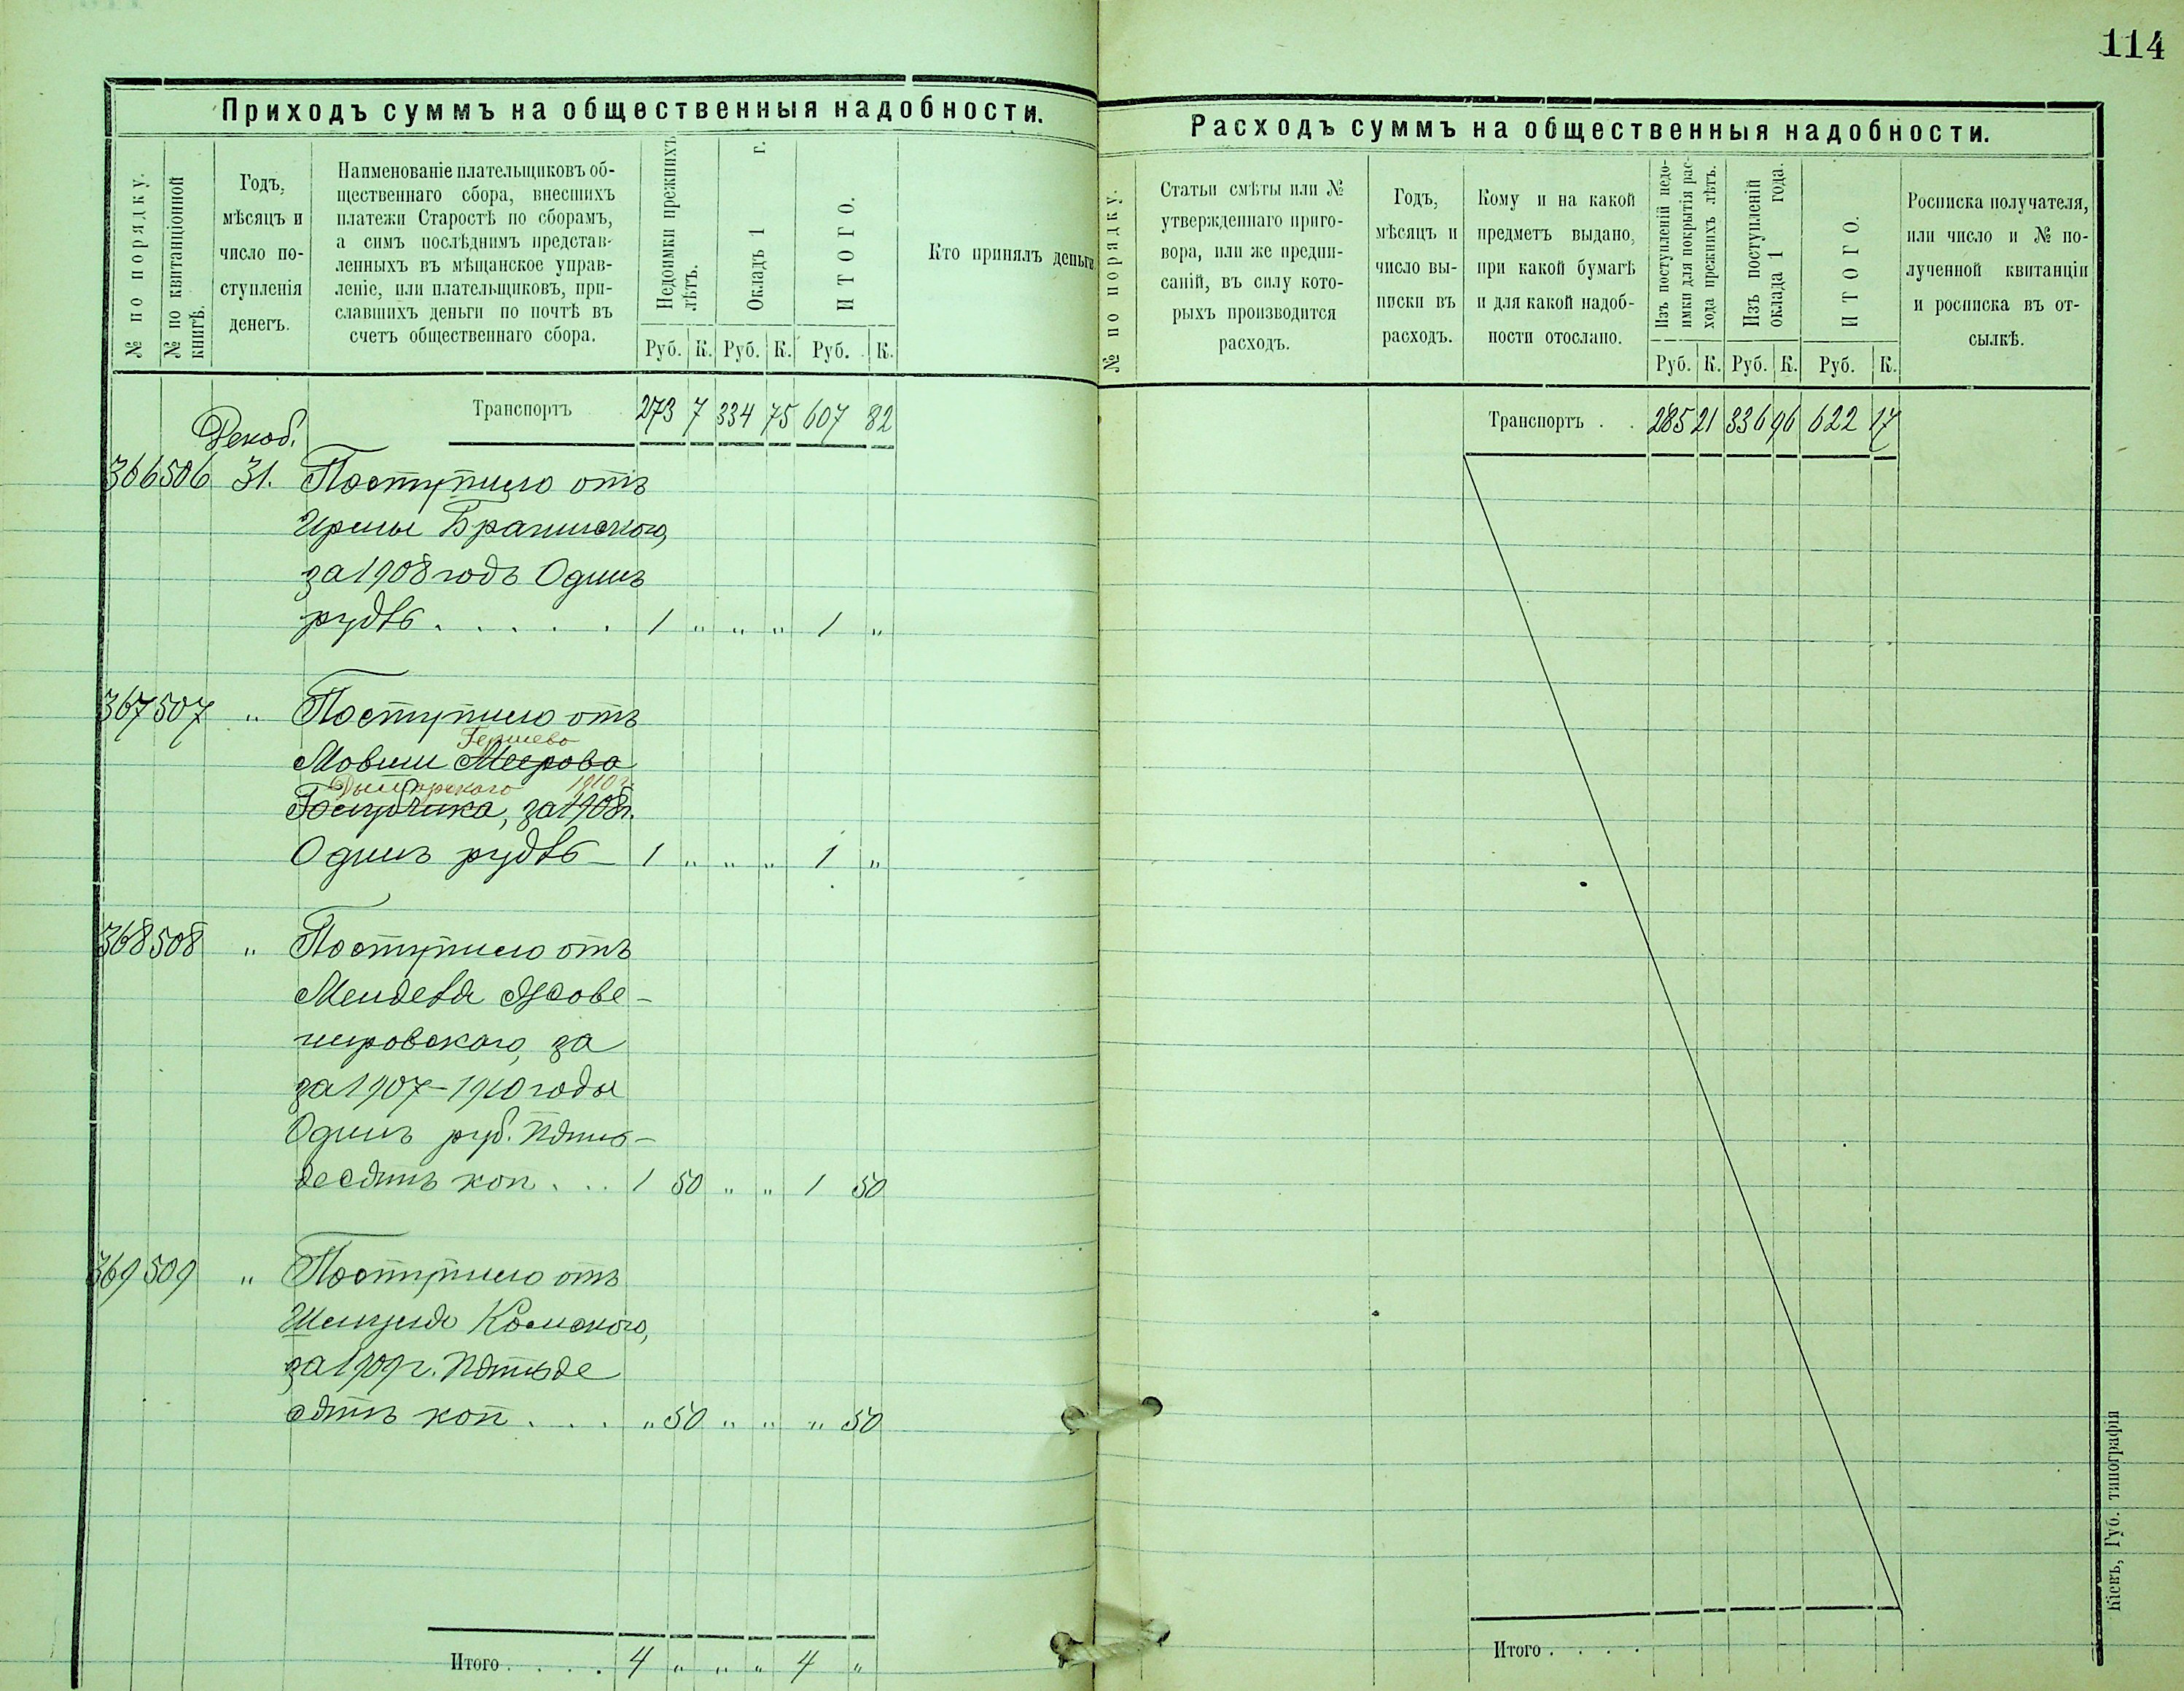 114
Приходъ суммъ на общественныя надобности.
№ по порядку.
№ по квитанціонной книгѣ.
Годъ,
мѣсяцъ и
число по-
ступленія
денегъ.
Наименованіе плательщиковъ об-
щественнаго сбора, внесшихъ
платежи Старостѣ по сборамъ,
а симъ послѣднимъ представ-
ленныхъ въ мѣщанское управ-
леніе, или плательщиковъ, при-
славшихъ деньги по почтѣ въ
счетъ общественнаго сбора.
Недоимки прежнихъ
лѣтъ.
Окладъ 1 г.
ИТОГО.
Кто принялъ деньги
Руб. К. Руб. К. Руб. К.
Транспортъ 273 7 334 75 607 82
Декаб.
366 506 31. Поступило отъ
за 1908 годъ Одинъ
рубль . . . . . 1 " " " 1 "
367 507 " Поступило отъ
Гершево
Мовши Меерова
1910 г.
за 1908 г.
Одинъ рубль 1 " " " 1 "
368 508 " Поступило отъ
Менделя
за
за 1907-1910 годы
Одинъ руб. пять-
десятъ коп. . . 1 50 " " 1 50
369 509 " Поступило отъ
за 1909 г. пятьде
сятъ коп. . . . " 50 " " " 50
Итого . . . . 4 " " " 4 "
Расходъ суммъ на общественныя надобности.
№ по порядку.
Статьи смѣты или №
утвержденнаго приго-
вора, или же предпи-
саній, въ силу кото-
рыхъ производится
расходъ.
Годъ,
мѣсяцъ и
число вы-
писки въ
расходъ.
Кому и на какой
предметъ выдано,
при какой бумагѣ
и для какой надоб-
ности отослано.
Изъ поступленій недо-
имки для покрытія рас-
хода прежнихъ лѣтъ.
Изъ поступленій
оклада 1 года.
ИТОГО.
Росписка получателя,
или число и № по-
лученной квитанціи
и росписка въ от-
сылкѣ.
Руб. К. Руб. К. Руб. К.
Транспортъ . . 285 21 336 96 622 17
Итого . . . .
Кіевъ, Губ. типографія